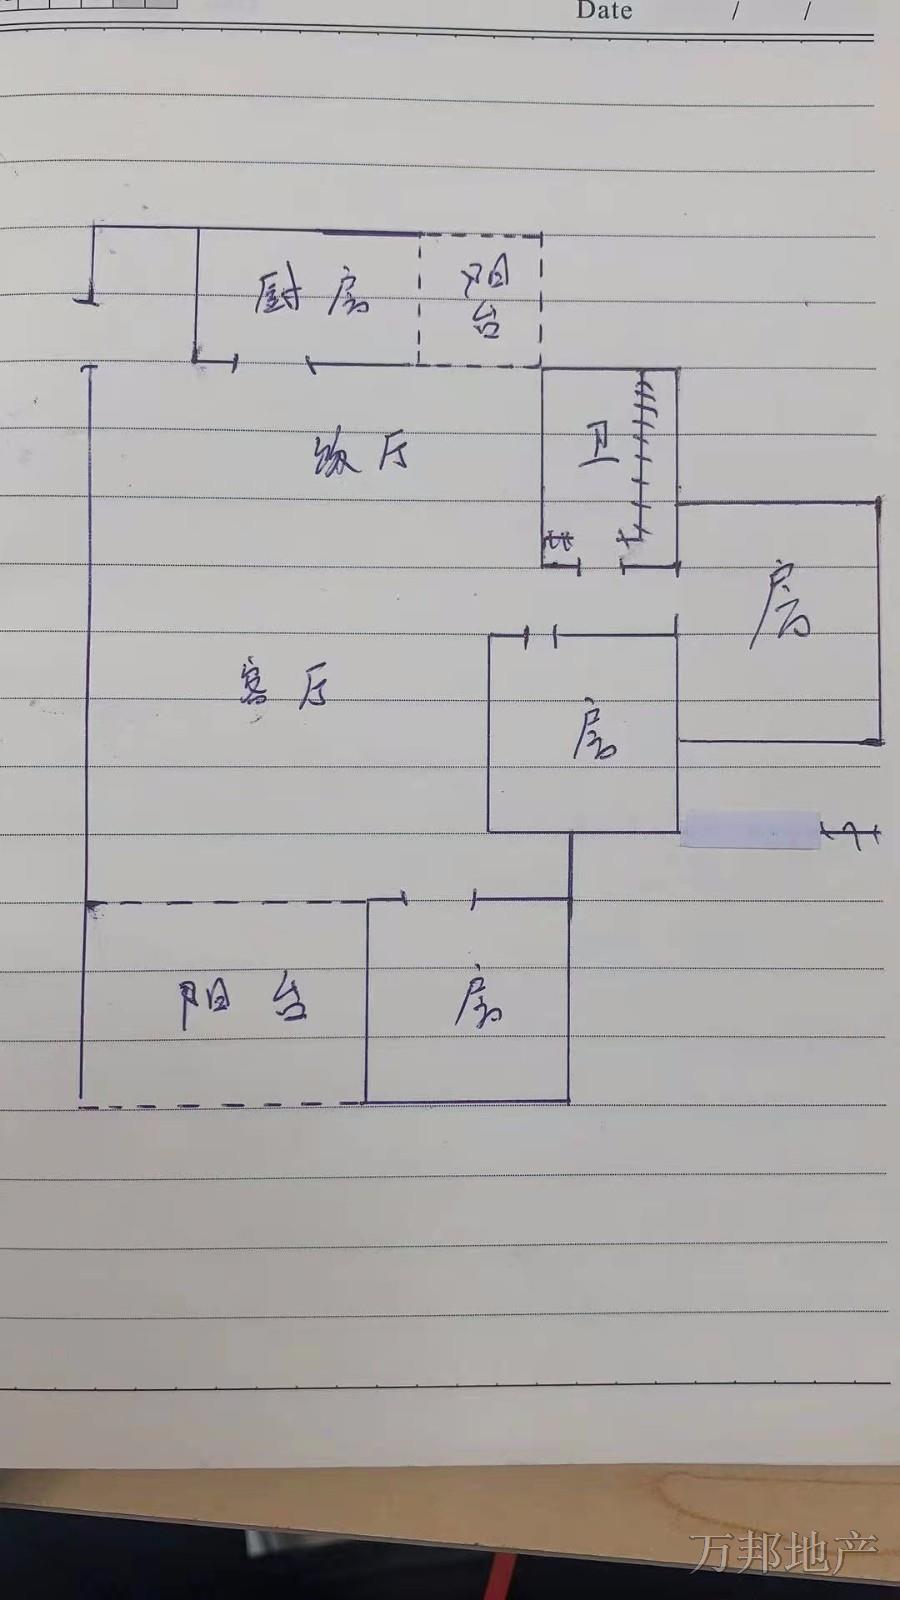 Date / /
厨房
阳台
饭厅
卫
房
客厅
房
阳台
房
万邦地产